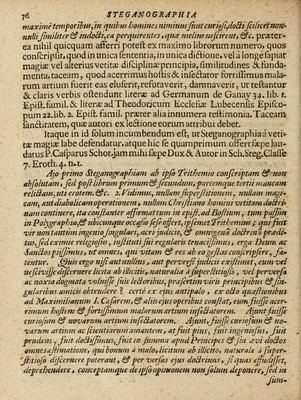 76 STEGANOGRAPHIA
maximè temporibus, in quibus homines nimium sunt curiosi, docti scilicet non-
nulli similiter & indocti, ea perquirentes, quæ melius nescirent, &c. præter-
ea nihil quicquam afferri potest ex maximo librorum numero, quos
conscripsit, quod in unica sententia, in unica dictione, vel à longe sapiat
magiæ vel alterius vetitæ disciplinæ principia, similitudines & funda-
menta, taceam, quod acerrimus hostis & insectator fortissimus mala-
rum artium fuerit eas eluserit, refutaverit, damnaverit, ut testantur
& claris verbis ostendunt literæ ad Germanum de Ganay 34. lib. 1.
Epist. famil. & literæ ad Theodoricum Ecclesiæ Lubecensis Episco-
pum 22. lib. 2. Epist. famil. præter alia innumera testimonia. Taceam
Sanctitatem, quæ autori ex lectione eorum attribui debet.
Itaque in id solum incumbendum est, ut Steganographia à veti-
tæ magiæ labe defendatur, atque hic se quamprimum offert sæpe lau-
datus P. Casparus Schot. jam mihi sæpe Dux & Autor in Sch. Steg. Classe
7. Eroth. 4. n. 1.
Ajo primo Steganographiam ab ipso Trithemio conscriptam & non
absolutam, sed post librum primum & secundum, partemque tertii mancam
relictam, uti extat &c. 2. Vidimus, nullam superstitionem, nullam magi-
cam, aut diabolicam operationem, nullam Christiano homini vetitam doctri-
nam continere, ita constanter affirmat tum in epist. ad Bostium, tum passim
in Polygraphia, & ubicunque occasio sese offert, ipsemet Trithemius; qui fuit
vir non tantum ingenio singulari, acri judicio, & omnigenâ doctrinâ prædi-
tus, sed eximiè religiosus, instituti sui regularis tenacissimus, erga Deum ac
Sanctos piissimus, ut omnia, qui vitam & res ab eo gestas conscripsere, fa-
tentur. Quis ergo nisi aut nullius, aut perversi judicii existimet, eum vel
nescivisse discernere licita ab illicitis, naturalia à superstitiosis, vel perversa
ac noxia dogmata voluisse suis lectoribus, præsertim viris principibus & sin-
gularibus amicis obtrudere? certe ex ejus antipalo, ex octo quæstionibus
ad Maximilianum I. Cæsarem, & aliis ejus operibus constat, eum fuisse acer-
rimum hostem & fortissimum malarum artium insectatorem. Ajunt fuisse
curiosum & novarum artium insectatorem. Ajunt, fuisse curiosum & no-
varum artium ac scientiarum amantem, at fuit pius, fuit ingeniosus, fuit
prudens, fuit doctissimus, fuit in summa apud Principes & sui ævi doctos
omnes æstimatione, qui bonum à malo, licitum ab illicito, naturale à super-
stitioso discernere poterant, & per versus ejus doctrinas, si quas effudisset,
deprehendere, conceptamque de ipso opinionem non solum deponere, sed in
sum-